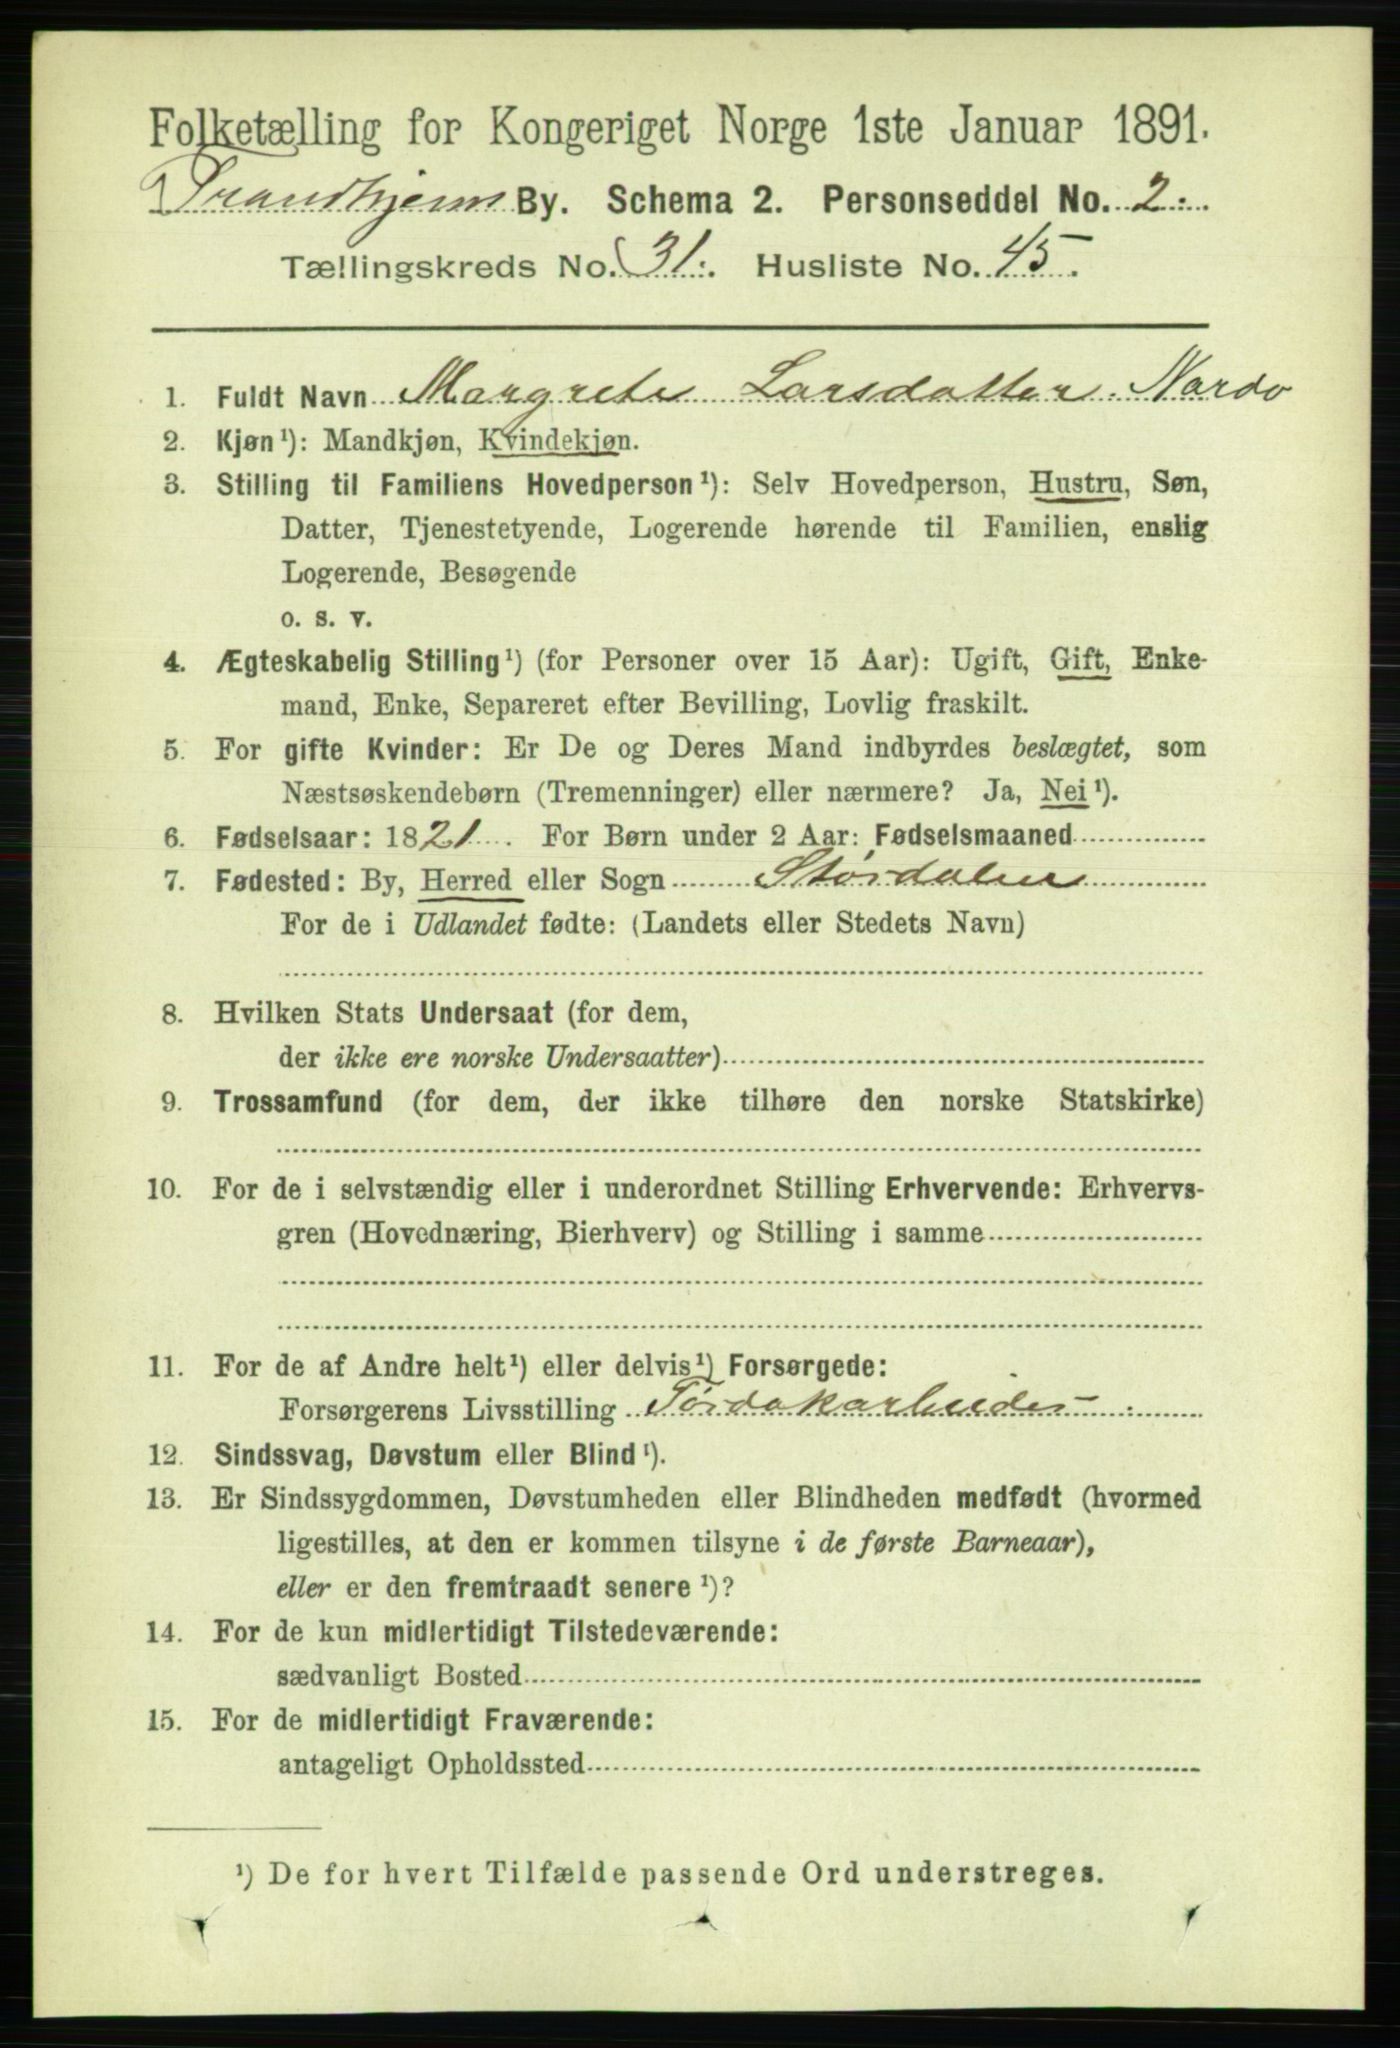 Folketælling for Kongeriget Norge 1ste Januar 1891.
Trondhjems By. Schema 2. Personseddel No. 2.
Tællingskreds No. 31. Husliste No. 45.
1. Fuldt Navn Margrete Larsdatter Nardo
2. Kjøn¹): Mandkjøn, Kvindekjøn.
3. Stilling til Familiens Hovedperson¹): Selv Hovedperson, Hustru, Søn,
Datter, Tjenestetyende, Logerende hørende til Familien, enslig
Logerende, Besøgende
o. s. v.
4. Ægteskabelig Stilling¹) (for Personer over 15 Aar): Ugift, Gift, Enke-
mand, Enke, Separeret efter Bevilling, Lovlig fraskilt.
5. For gifte Kvinder: Er De og Deres Mand indbyrdes beslægtet, som
Næstsøskendebørn (Tremenninger) eller nærmere? Ja, Nei¹).
6. Fødselsaar: 1821. For Børn under 2 Aar: Fødselsmaaned
7. Fødested: By, Herred eller Sogn Størdalen
For de i Udlandet fødte: (Landets eller Stedets Navn)
8. Hvilken Stats Undersaat (for dem,
der ikke ere norske Undersaatter)
9. Trossamfund (for dem, der ikke tilhøre den norske Statskirke)
10. For de i selvstændig eller i underordnet Stilling Erhvervende: Erhvervs-
gren (Hovednæring, Bierhverv) og Stilling i samme
11. For de af Andre helt¹) eller delvis¹) Forsørgede:
Forsørgerens Livsstilling
12. Sindssvag, Døvstum eller Blind¹).
13. Er Sindssygdommen, Døvstumheden eller Blindheden medfødt (hvormed
ligestilles, at den er kommen tilsyne i de første Barneaar),
eller er den fremtraadt senere¹)?
14. For de kun midlertidigt Tilstedeværende:
sædvanligt Bosted
15. For de midlertidigt Fraværende:
antageligt Opholdssted
¹) De for hvert Tilfælde passende Ord understreges.